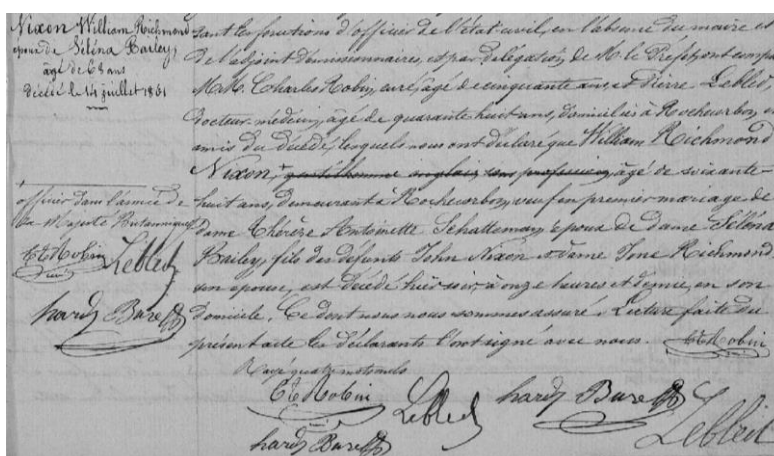 Nixon William Richmond
époux de Séléna Bailey,
âgé de 68 ans
Décédé le 14 juillet 1861
sant les fonctions d'officier de l'état civil, en l'absence du maire et
de l'adjoint démissionnaires, et par délégation de M. le Préfet, ont comp
MM. Charles Robin, curé, âgé de cinquante ans, et Pierre Lebled,
docteur médecin, âgé de quarante huit ans, domiciliés à Rochecorbon,
amis du décédé, lesquels nous ont déclaré que William Richmond
Nixon, + gentilhomme anglais, sans profession, âgé de soixante
huit ans, demeurant à Rochecorbon, veuf en premier mariage de
dame Thérèse Antoinette Schatteman, époux de dame Séléna
Bailey, fils des défunts John Nixon et dame Jane Richmond
son épouse, est décédé hier soir, à onze heures et demie, en son
domicile. Ce dont nous nous sommes assuré. Lecture faite du
présent acte les déclarants l'ont signé avec nous.
+
officier dans l'armée de
Sa Majesté Britannique
Ch Robin
Lebled
hardy Burell
Ch Robin
Rayé quatre mots nuls
Ch Robin
Lebled
hardy Burell
Lebled
hardy Burell